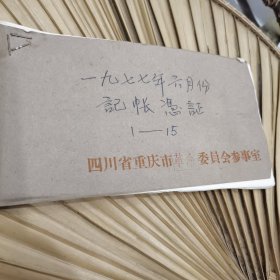 一九七七年六月份
記帐憑証
1——15
四川省重庆市革命委員会参事室